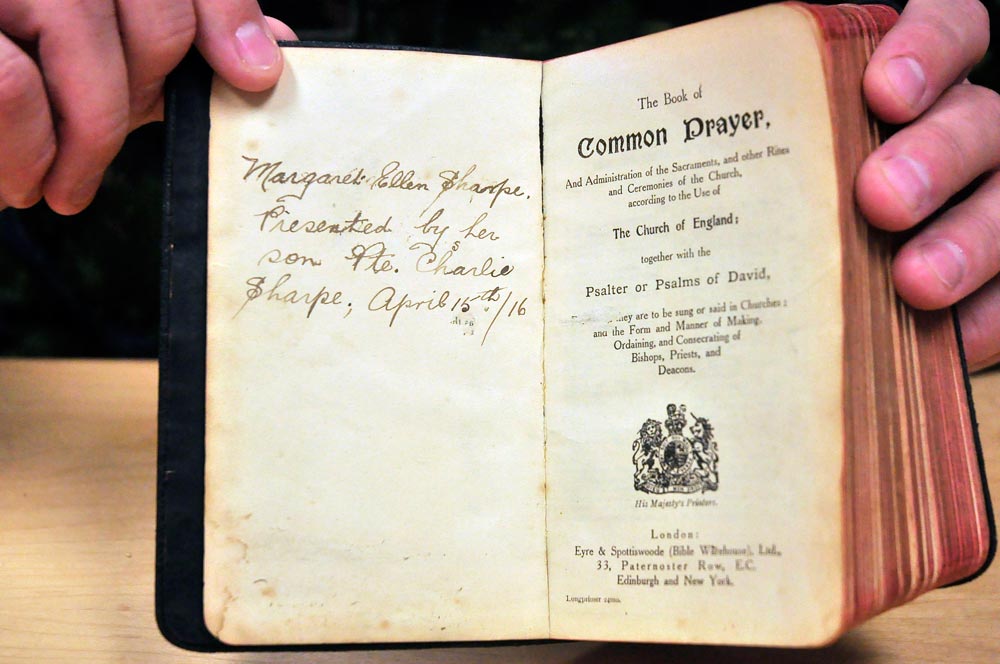 Margaret Ellen Sharpe.
Presented by her
son Pte. Charlie
Sharpe, April 15th/16
The Book of
Common Prayer,
And Administration of the Sacraments, and other Rites
and Ceremonies of the Church,
according to the Use of
The Church of England;
together with the
Psalter or Psalms of David,
they are to be sung or said in Churches;
and the Form and Manner of Making,
Ordaining, and Consecrating of
Bishops, Priests, and
Deacons.
His Majesty's Printers.
London:
Eyre & Spottiswoode (Bible Warehouse), Ltd.,
33, Paternoster Row, E.C.
Edinburgh and New York.
Longprimer 24mo.